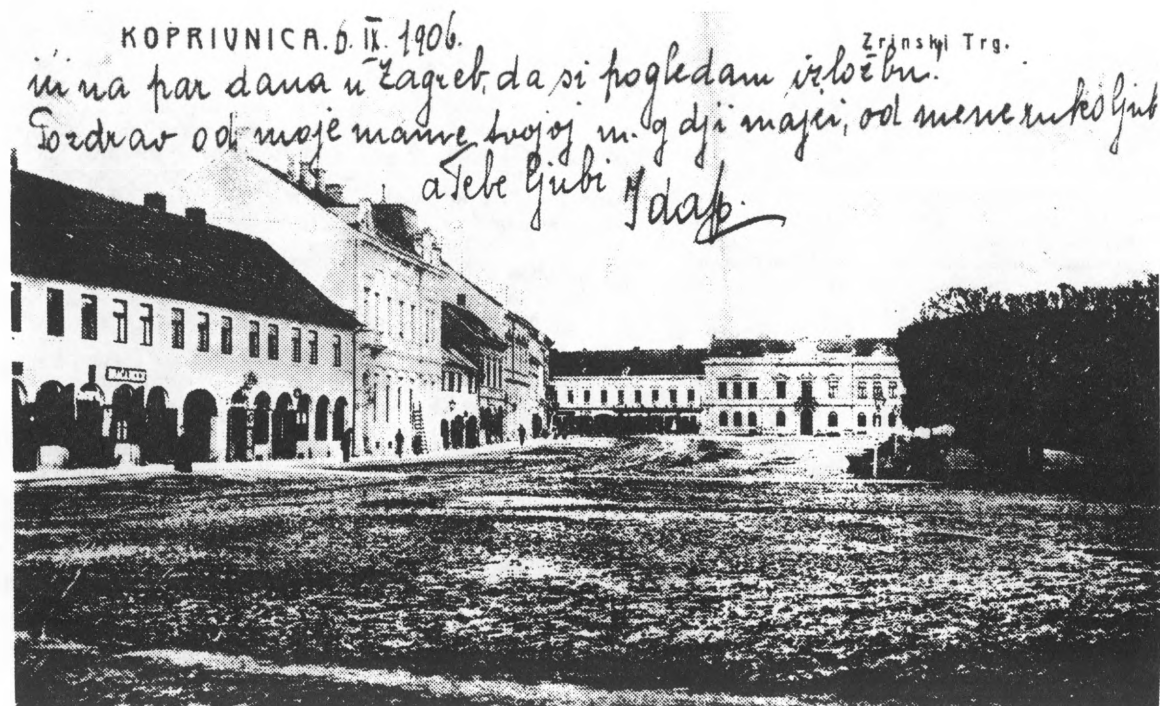 KOPRIVNICA. 6. IX. 1906.
Zrinski Trg.
ići na par dana u Zagreb, da si pogledam izložbu.
Pozdrav od moje mame tvojoj m. g dji majci, od mene rukoljub
a Tebe ljubi